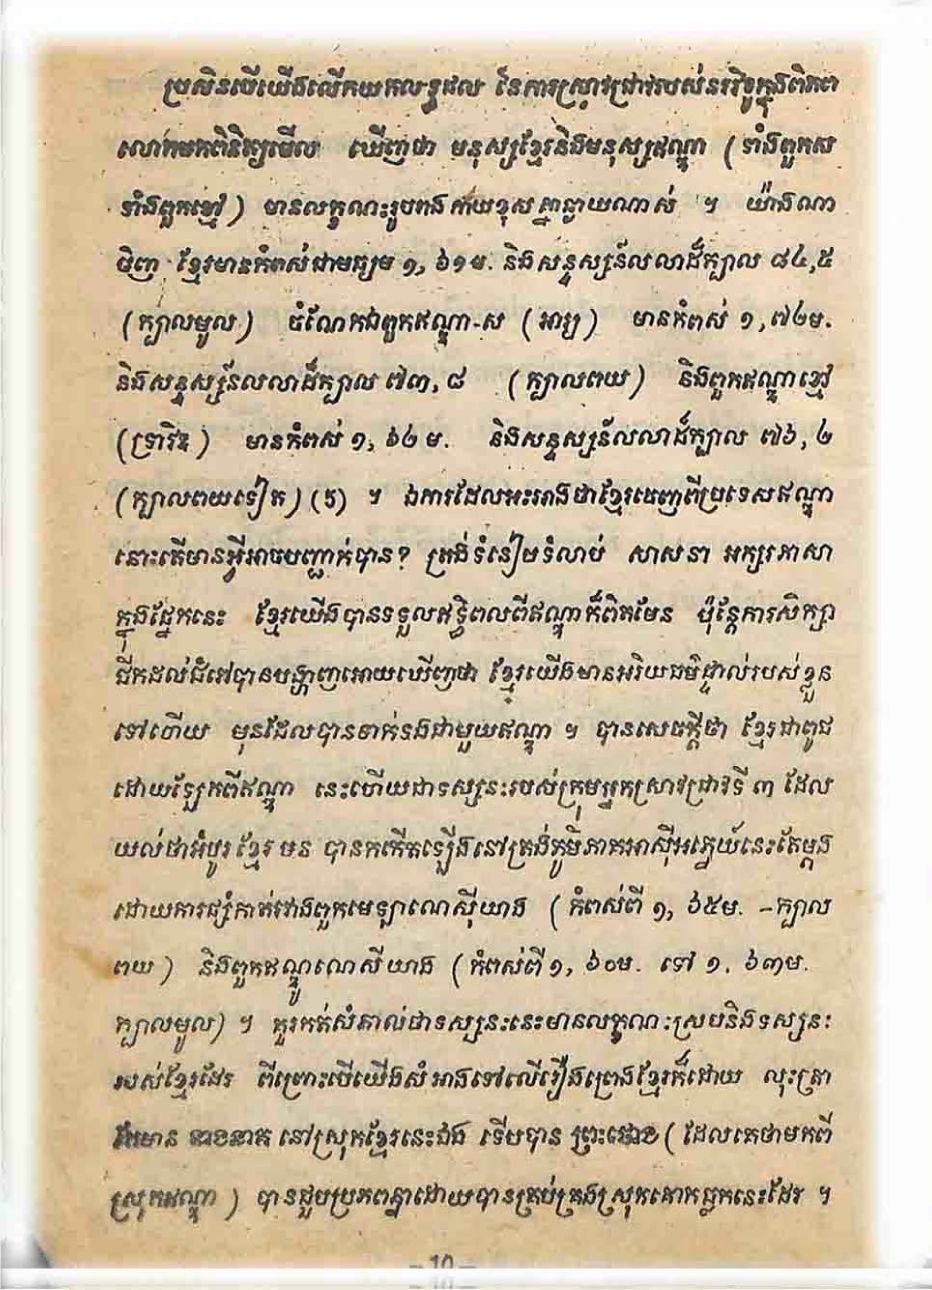 ប្រសិនបើយើងលើកយកលទ្ធផល នៃការស្រាវជ្រាវរបស់នរវិទូក្នុងពិភព
លោកមកពិនិត្យមើល ឃើញថា មនុស្សខ្មែរនិងមនុស្សឥណ្ឌា (ទាំងពួកស
ទាំងពួកខ្មៅ) មានលក្ខណះរូបរាងកាយខុសគ្នាឆ្ងាយណាស់ ។ យ៉ាងណា
មិញ ខ្មែរមានកំពស់ជាមធ្យម ១,៦១ម. និងសន្ទស្សន៍លលាដ៏ក្បាល ៨៤,៥
(ក្បាលមូល) ចំណែកឯពួកឥណ្ឌា-ស (អារ្យ) មានកំពស់ ១,៧៤ម.
និងសន្ទស្សន៍លលាដ៏ក្បាល ៧៣,៨ (ក្បាលពយ) និងពួកឥណ្ឌាខ្មៅ
(ទ្រាវិឌ) មានកំពស់ ១,៦៤ ម. និងសន្ទស្សន៍លលាដ៏ក្បាល ៧៦,៤
(ក្បាលពយទៀត) (៥) ។ ឯការដែលអះអាងថាខ្មែរចេញពីប្រទេសឥណ្ឌា
នោះតើមានអ្វីអាចបញ្ជាក់បាន? ត្រង់ទំនៀមទំលាប់ សាសនា អក្សរភាសា
ក្នុងផ្នែកនេះ ខ្មែរយើងបានទទួលឥទ្ធិពលពីឥណ្ឌាក៏ពិតមែន ប៉ុន្តែការសិក្សា
ជីកដល់ជំរៅបានបង្ហាញអោយឃើញថា ខ្មែរយើងមានអរិយធម៌ផ្ទាល់របស់ខ្លួន
ទៅហើយ មុនដែលបានទាក់ទងជាមួយឥណ្ឌា ។ បានសេចក្តីថា ខ្មែរជាពូជ
ដោយឡែកពីឥណ្ឌា នេះហើយជាទស្សនះរបស់ក្រុមអ្នកស្រាវជ្រាវទី ៣ ដែល
យល់ថាអំបូរ ខ្មែរ មន បានកកើតឡើងនៅត្រង់ភូមិភាគអាស៊ីអគ្នេយ៍នេះតែម្តង
ដោយការផ្សំកាត់រវាងពួកមេឡាណេស៊ីយាង (កំពស់ពី ១,៦៥ម. -ក្បាល
ពយ) និងពួកឥណ្ឌូណេស៊ីយាង (កំពស់ពី ១,៦០ម. ទៅ ១.៦៣ម.
ក្បាលមូល) ។ គួរកត់សំគាល់ថាទស្សនះនេះមានលក្ខណះស្របនិងទស្សនះ
របស់ខ្មែរដែរ ពីព្រោះបើយើងសំអាងទៅលើរឿងព្រេងខ្មែរក៏ដោយ លុះត្រា
តែមាន នាងនាគ នៅស្រុកខ្មែរនេះផង ទើបបាន ព្រះថោង (ដែលគេថាមកពី
ស្រុកឥណ្ឌា) បានជួបប្រភពគ្នាដោយបានគ្រប់គ្រងស្រុកគោកធ្លកនេះដែរ ។
-10-